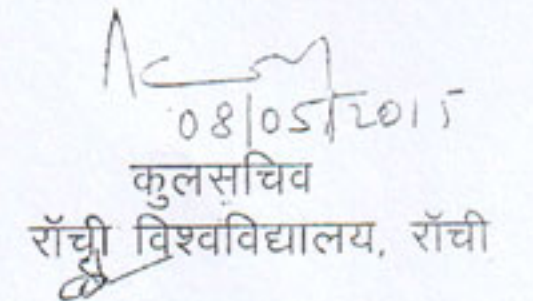 08/05/2015
कुलसचिव
राँची विश्वविद्यालय, राँची